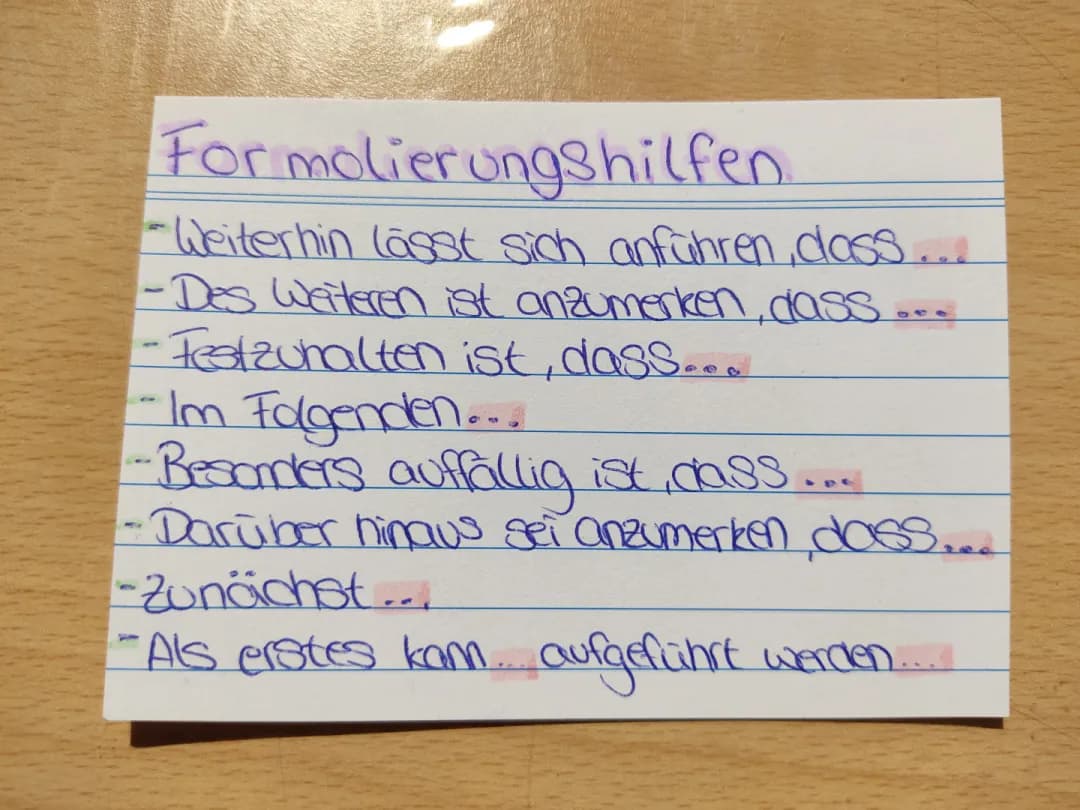 Formolierungshilfen
- Weiterhin lässt sich anführen, dass ...
- Des Weiteren ist anzumerken, dass ...
- Festzuhalten ist, dass ...
- Im Folgenden ...
- Besonders auffällig ist, dass ...
- Darüber hinaus sei anzumerken, dass ...
- Zunächst ...
- Als erstes kann ... aufgeführt werden ....